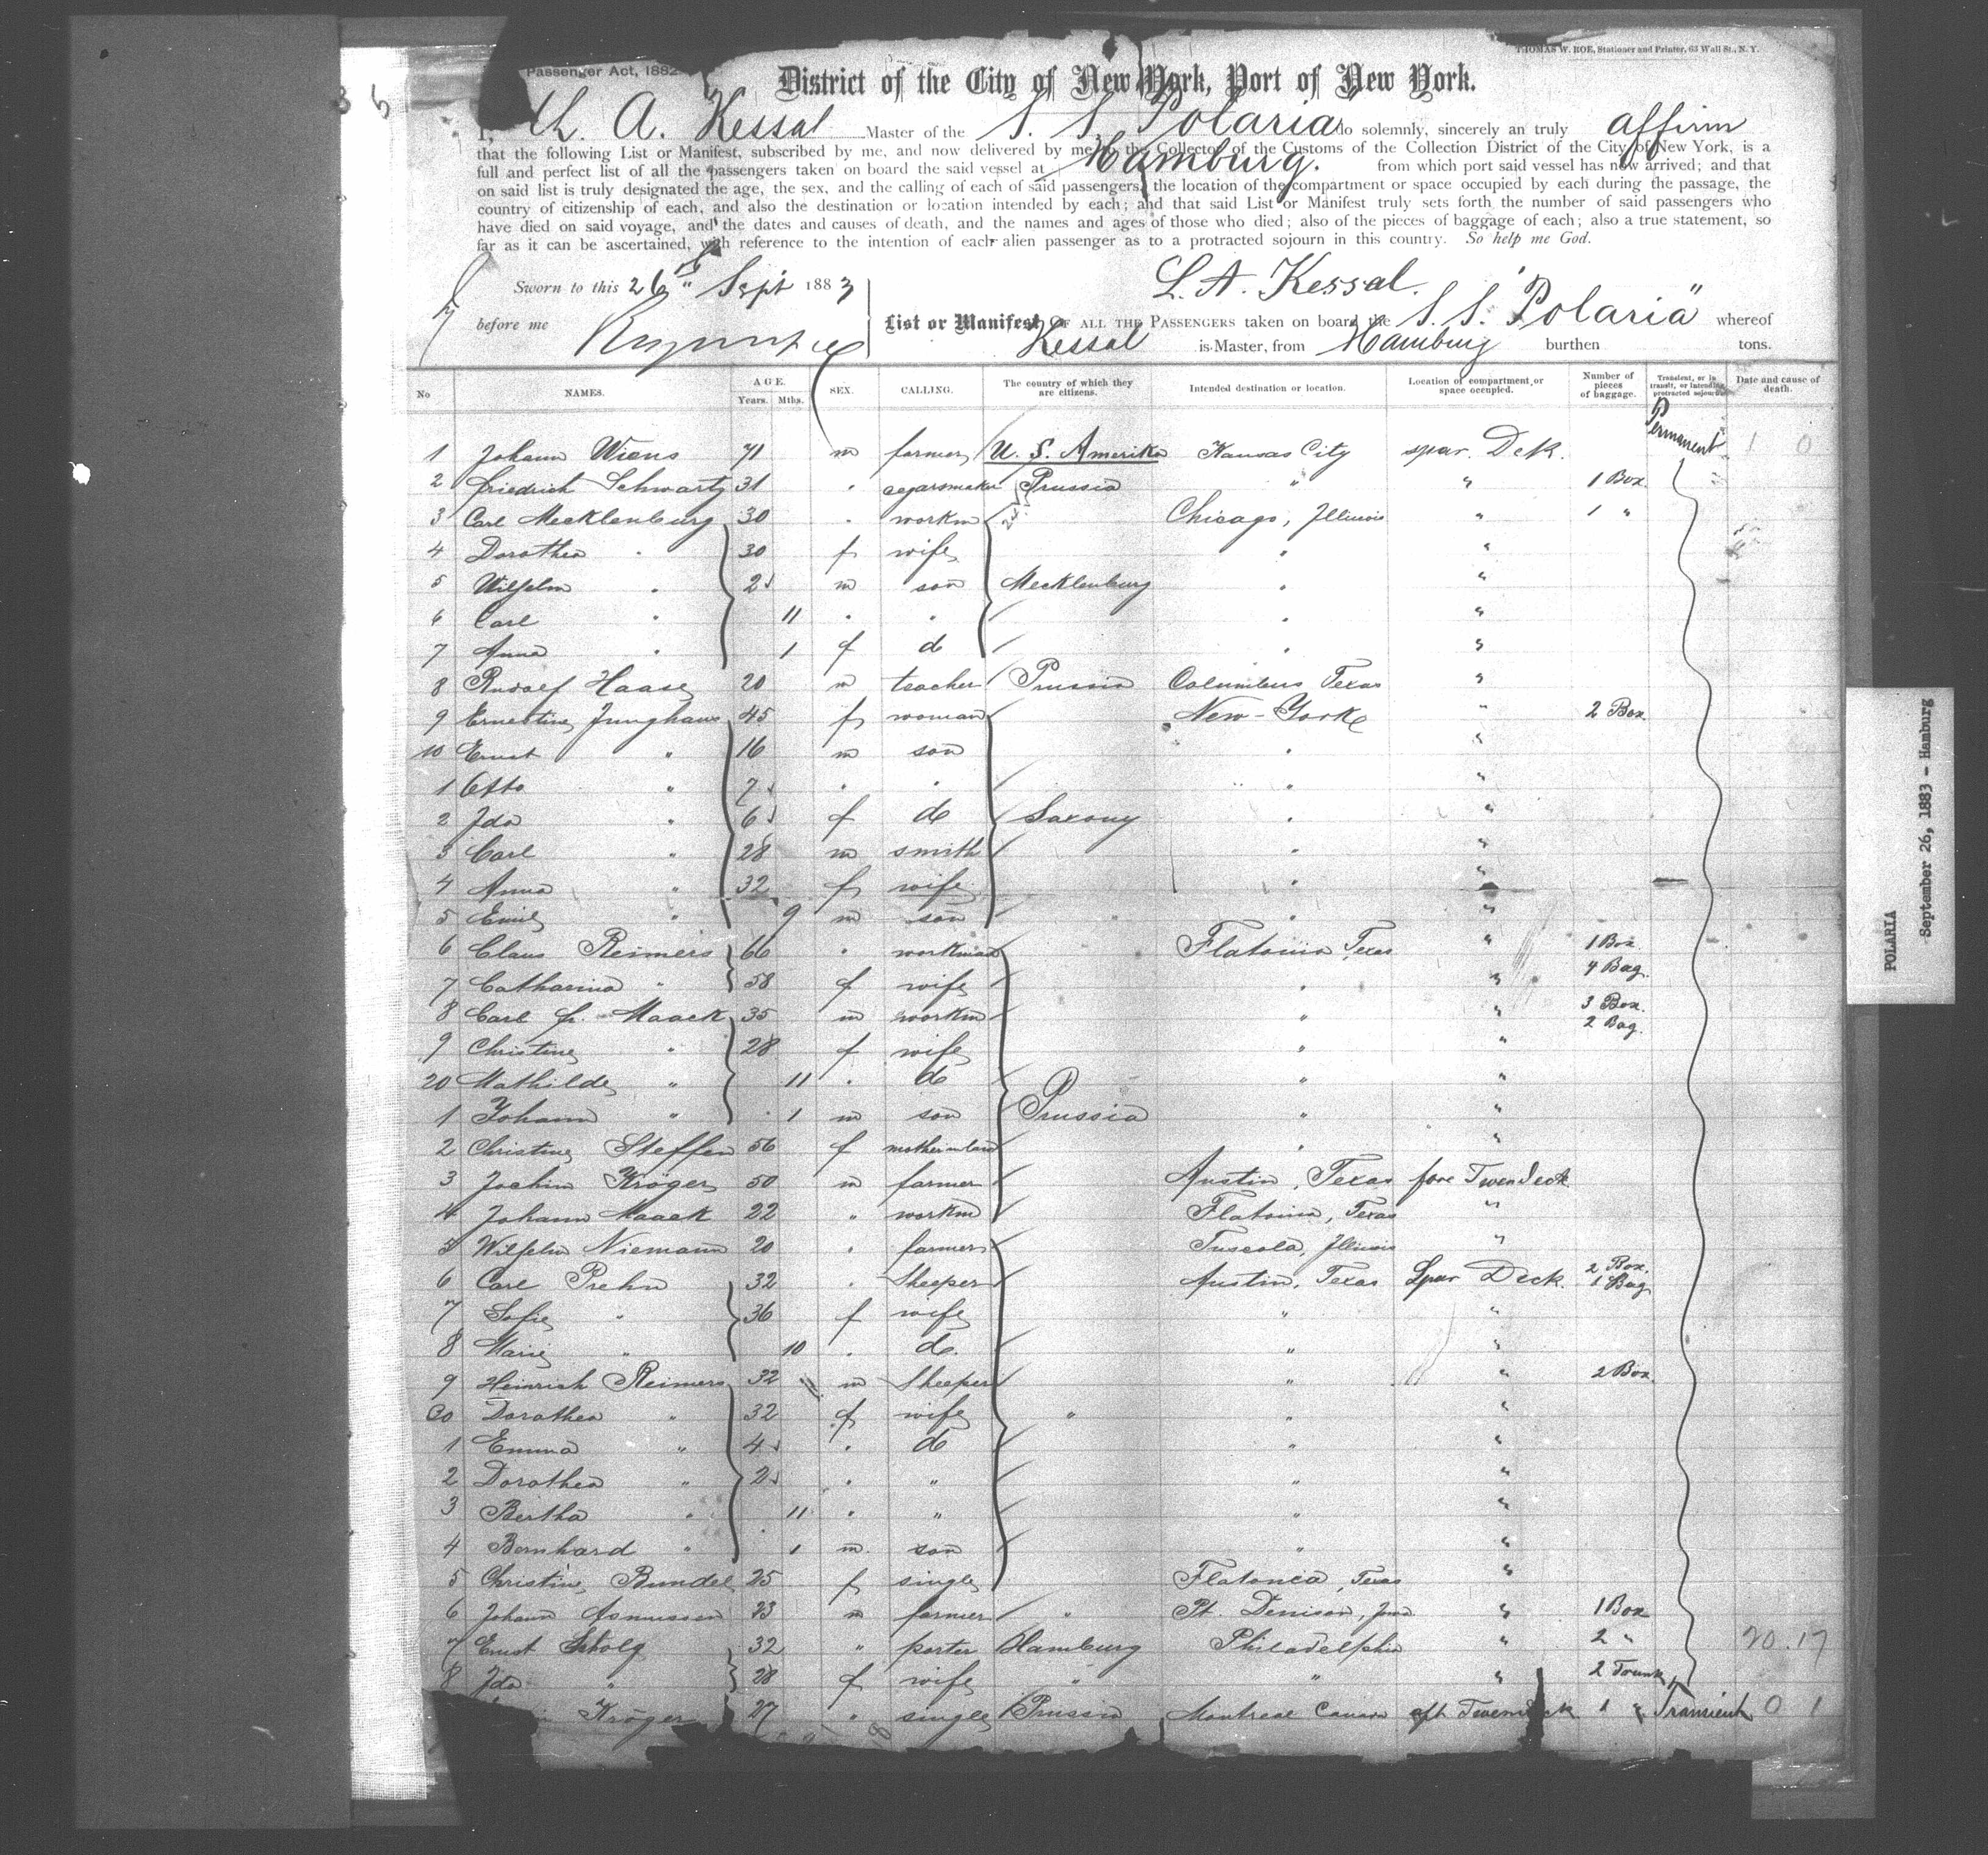 THOMAS W. ROE, Stationer and Printer, 63 Wall St., N. Y.
Passenger Act, 1882
District of the City of New York, Port of New York.
I, A. Kessal Master of the S. S. Polaria do solemnly, sincerely an truly affirm
that the following List or Manifest, subscribed by me, and now delivered by me to the Collector of the Customs of the Collection District of the City of New York, is a
full and perfect list of all the passengers taken on board the said vessel at Hamburg. from which port said vessel has now arrived; and that
on said list is truly designated the age, the sex, and the calling of each of said passengers, the location of the compartment or space occupied by each during the passage, the
country of citizenship of each, and also the destination or location intended by each; and that said List or Manifest truly sets forth the number of said passengers who
have died on said voyage, and the dates and causes of death, and the names and ages of those who died; also of the pieces of baggage of each; also a true statement, so
far as it can be ascertained, with reference to the intention of each alien passenger as to a protracted sojourn in this country. So help me God.
Sworn to this 26th Sept 1883 L. A. Kessal.
before me
List or Manifest OF ALL THE PASSENGERS taken on board the S. S. "Polaria" whereof
Kessal is Master, from Hamburg burthen tons.
No NAMES. AGE. Years. Mths. SEX. CALLING. The country of which they are citizens. Intended destination or location. Location of compartment or space occupied. Number of pieces of baggage. Transient, or in transit, or intending protracted sojourn Date and cause of death.
1 Johann Wiens 71 m farmer U. S. Amerika Kansas City spar. Dek. Permanent 1 0
2 Friedrich Schwartz 31 " cegarsmaker Prussia " " 1 Box
3 Carl Mecklenburg 30 " workm Chicago, Illinois " 1 "
4 Dorothea " 30 f wife " "
5 Wilhelm " 2 m son Mecklenburg " "
6 Carl " 11 " " " "
7 Anna " 1 f d " "
8 Rudolf Haase 20 m teacher Prussia Columbus Texas "
9 Ernestine Junghans 45 f woman New-Yorke " 2 Box
10 Ernst " 16 m son " "
1 Otto " 7 " " " "
2 Ida " 6 f do Saxony " "
3 Carl " 28 m smith " "
4 Anna " 32 f wife " "
5 Emil " 9 m son " "
6 Claus Reimers 66 " workman Flatonia Texas " 1 Box
4 Bag.
7 Catharina " 58 f wife " "
8 Carl fr. Maack 35 m workm " " 3 Box.
2 Bag.
9 Christine " 28 f wife " "
20 Mathilde " 11 " do " "
1 Johann " 1 m son Prussia " "
2 Christine Steffen 56 f mother in law " "
3 Jochim Kröger 50 m farmer Austin, Texas fore Twendeck
4 Johann Maack 22 " workm Flatonia, Texas "
5 Wilhelm Niemann 20 " farmer Tuscola, Illinois "
6 Carl Prehn 32 " Sheeper Austin, Texas Spar Deck. 2 Box.
1 Bag
7 Sofie " 36 f wife " "
8 Marie " 10 " do. " "
9 Heinrich Reimers 32 m Sheeper " " 2 Box
30 Dorothea " 32 f wife " " "
1 Emma " 4 " do " "
2 Dorothea " 2 " " " "
3 Bertha " 11 " " " "
4 Bernhard " 1 m. son " "
5 Christine Bundel 25 f single Flatonia, Texas "
6 Johann Asmussen 23 m farmer " Pt. Denison, Jowa " 1 Box
7 Ernst 32 " porter Hamburg Philadelphia " 2 " 20. 17
8 Ida " 28 f wife " " " 2 Trunk
Kröger 27 " single Prussia Montreal Canada aft Twendeck 1 " Transient 0 1
POLARIA
September 26, 1883 - Hamburg